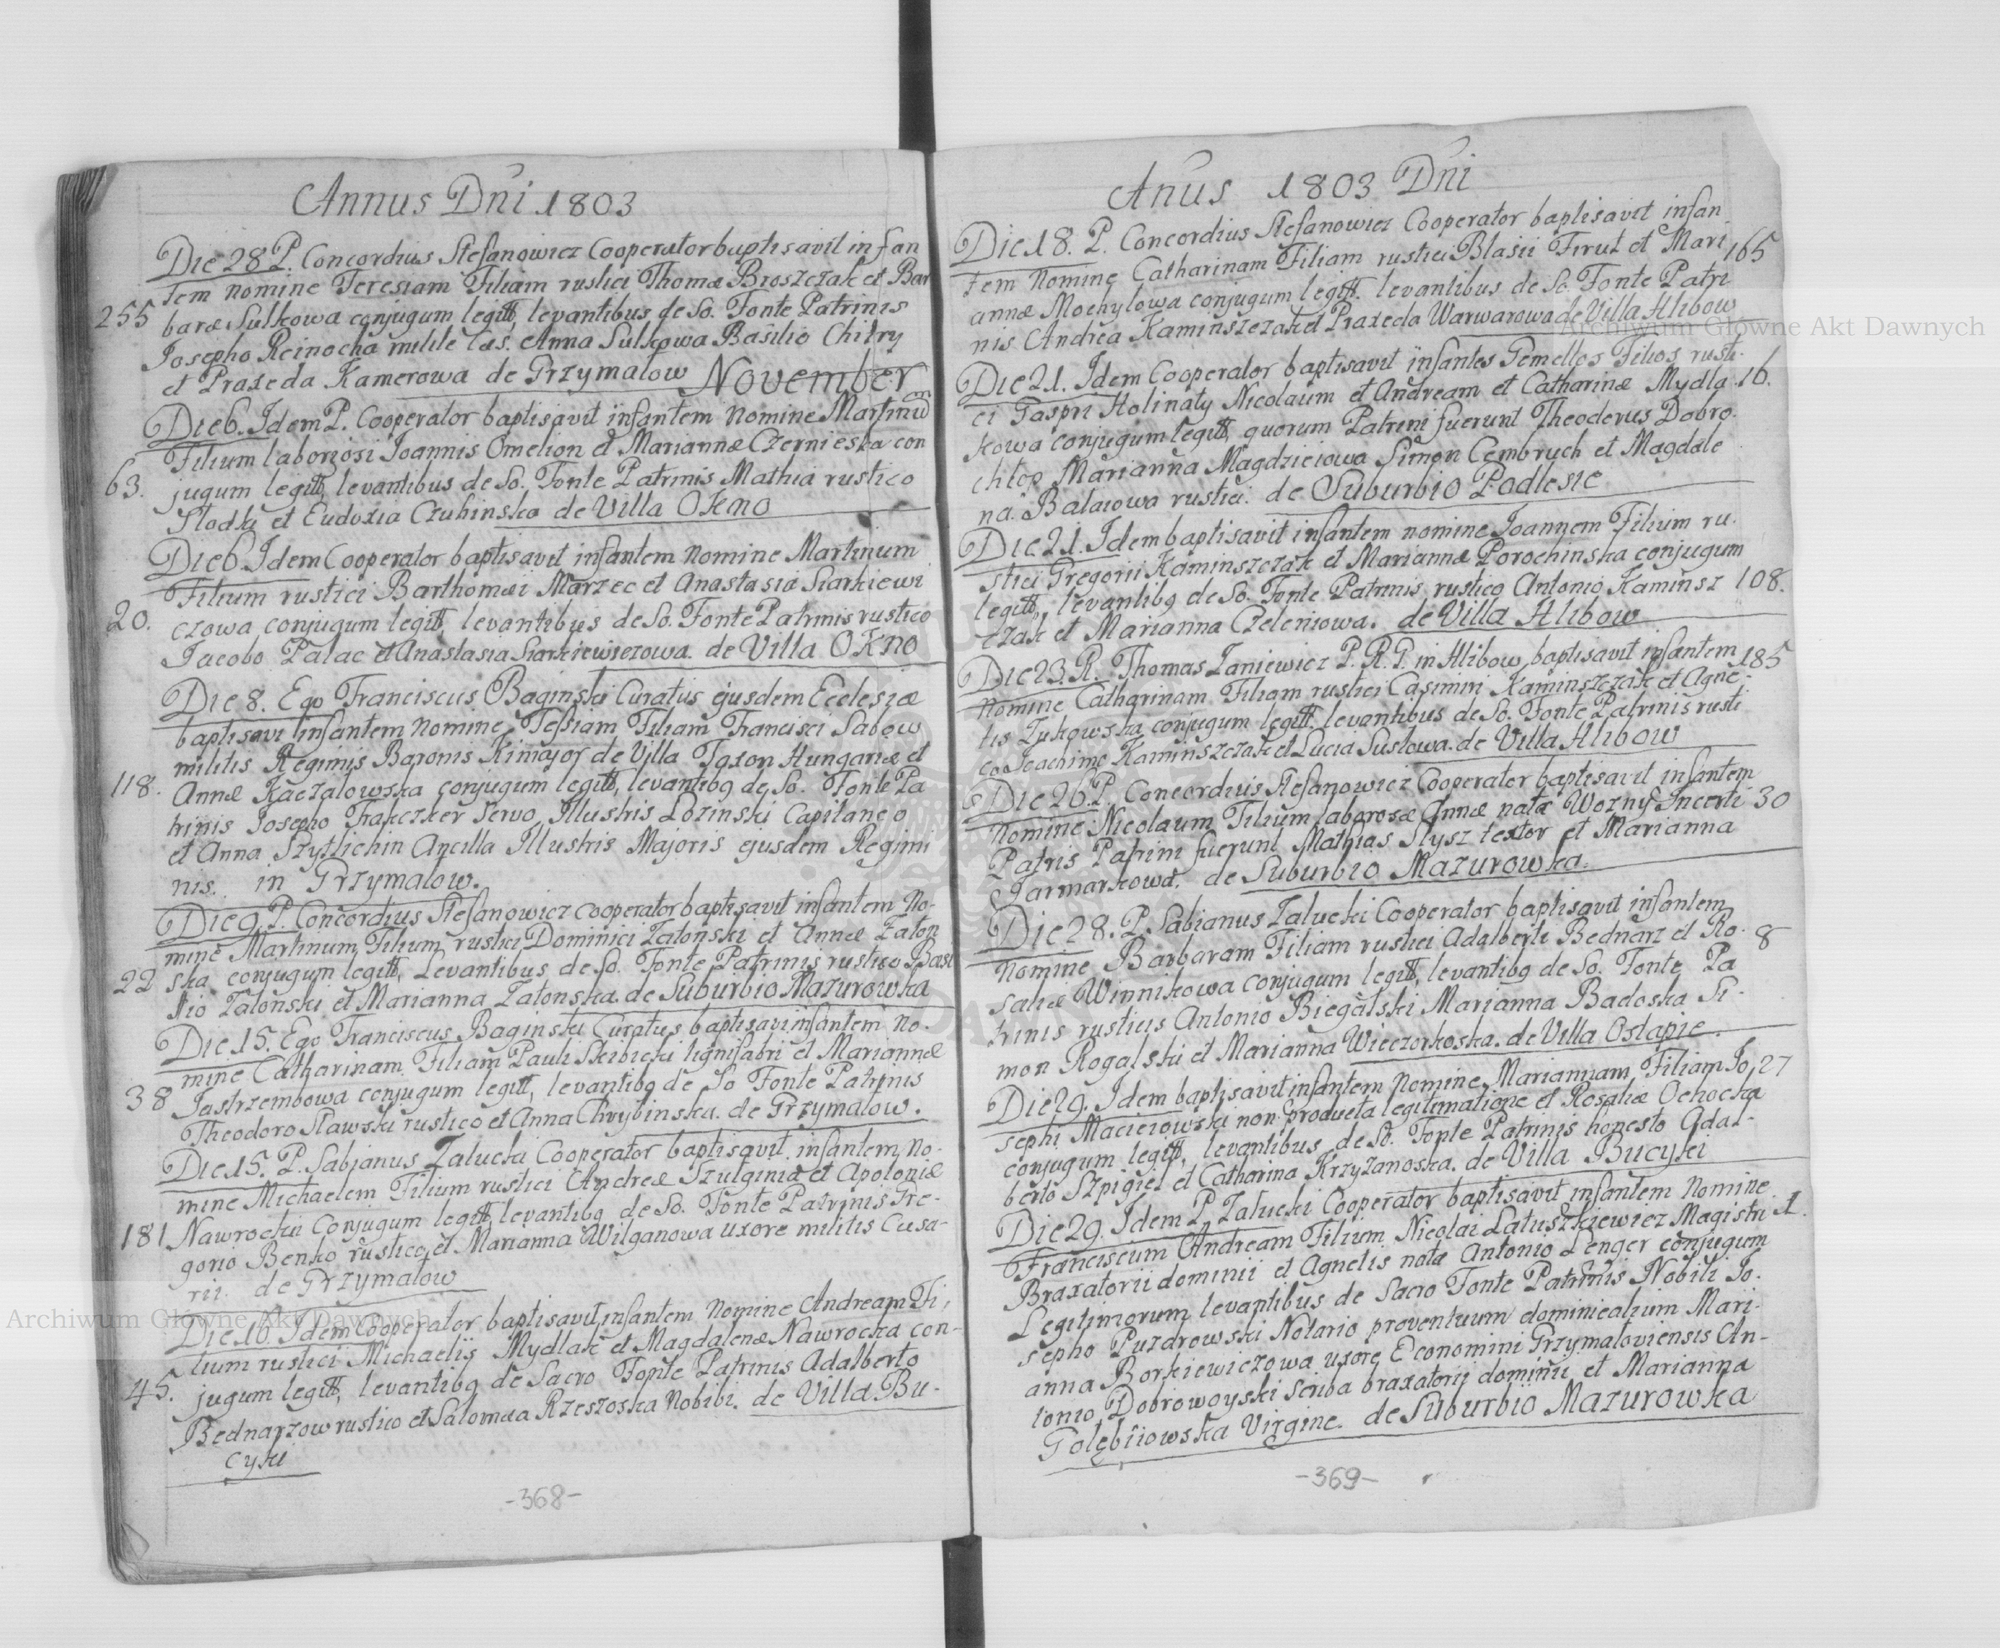 Annus Dni 1803
Die 28 P. Concordius Stefanowicz Cooperator baptisavit infan
tem nomine Teresiam Filiam rustici Thomæ Broszczak et Bar
255 baræ Sulkowa conjugum legitt, levantibus de So. Fonte Patrinis
Josepho Reinocha milite Cæs. Anna Sulkowa Basilio Chitry
et Praxeda Kamerowa de Grzymałow November
Die 6. Idem P. Cooperator baptisavit infantem nomine Martinum
Filium laboriosi Joannis Omelion et Mariannæ Czernieska con
63. jugum legitt, levantibus de So. Fonte Patrinis Mathia rustico
Słodki et Eudoxia Czubinska de Villa Okno
Die 6. Idem Cooperator baptisavit infantem nomine Martinum
Filium rustici Barthomæi Marzec et Anastasiæ Siarkiewi
20. czowa conjugum legitt, levantibus de So. Fonte Patrinis rustico
Jacobo Palac et Anastasia Siarkiewiezowa. de Villa Okno
Die 8. Ego Franciscus Baginski Curatus ejusdem Ecclesiæ
baptisavi infantem nomine Filiam Francisci Sabow
militis Regimis Baronis Kimajor de Villa Taxon Hungariæ et
118. Annæ Kaczalowska conjugum legitt, levantibq de So. Fonte Pa
trinis Josepho Frakczker Servo Illustris Lozinski Capitaneo
et Anna Szytlichin Ancilla Illustris Majoris ejusdem Regimi
nis. in Grzymałow.
Die 9. P. Concordius Stefanowicz cooperator baptisavit infantem No-
mine Martinum Filium rustici Dominici Zatonski et Annæ Zaton
22 ska conjugum legitt, Levantibus de So. Fonte Patrinis rustico Basi
lio Zatonski et Marianna Zatonska. de Suburbio Mazurowka
Die 15. Ego Franciscus Baginski Curatus baptisavi infantem No.
mine Catharinam Filiam Pauli Skibicki lignifabri et Mariannæ
38 Jastrzembowa conjugum legitt, levantibq de So Fonte Patrinis
Theodoro Sławski rustico et Anna Chrybinska. de Grzymałow.
Die 15. P. Sabianus Załucki Cooperator baptisavit infantem No.
mine Michaelem Filium rustici Andreæ Szulginia et Apoloniæ
181 Nawrocki Conjugum legitt, levantibq de So. Fonte Patrinis Gre-
gorio Benko rustico et Marianna Wilganowa uxore militis Cæsa-
rii. de Grzymałow
Die 16. Idem Cooperator baptisavit infantem Nomine Andream Fi,
lium rustici Michaelis Mydlak et Magdalenæ Nawrocka con-
45. jugum legitt, levantibq de Sacro Fonte Patrinis Adalberto
Bednarzow rustico et Salomea Rzeszoska Nobibi. de Villa Bu-
cyki
-368-
Anus 1803 Dni
Die 18. P. Concordius Stefanowicz Cooperator baptisavit infan
tem Nomine Catharinam Filiam rustici Blasii Firut et Mari 165
annæ Mochylowa conjugum legitt. levantibus de So. Fonte Patri
nis Andrea Kaminszczak et Praxeda Warwarowa de Villa Hlibow
Die 21. Idem Cooperator baptisavit infantes Gemellos Filios rusti.
ci Gaspri Holinaty Nicolaum et Andream et Catharinæ Mydla. 16.
kowa conjugum legitt, quorum Patrini fuerunt Theodorus Dobro.
chłop Marianna Magdziciowa Simon Cembrych et Magdale
na. Balaiowa rustici. de Suburbio Podlesie
Die 21. Idem baptisavit infantem nomine Joannem Filium ru.
stici Gregorii Kaminszczak et Mariannæ Porochinska conjugum
legitt, levantibq de So. Fonte Patrinis rustico Antonio Kaminsz 108.
czak et Marianna Czeleniowa. de Villa Hlibow
Die 23. R. Thomas Zaniewicz P. R. G. in Hlibow baptisavit infantem 185
Nomine Catharinam Filiam rustici Casimiri Kaminszczak et Agne-
tis Zukowska conjugum legitt, levantibus de So. Fonte Patrinis rusti
co Joachimo Kaminszczak et Lucia Suslowa. de Villa Hlibow
Die 26. P. Concordius Stefanowicz Cooperator baptisavit infantem
Nomine Nicolaum Filium laborosæ Annæ natæ Wozny Incerti 30
Patris Patrini fuerunt Mathias Slysz textor et Marianna
Jarmarkowa. de Suburbio Mazurowka.
Die 28. P. Sabianus Zalucki Cooperator baptisavit infantem
Nomine Barbaram Filiam rustici Adalberti Bednarz et Ro. 8
saliæ Winnikowa conjugum legitt, levantibq de So. Fonte Pa
trinis rusticis Antonio Biegalski Marianna Badoska Si.
mon Rogalski et Marianna Wieczorkoska. de Villa Ostapie.
Die 29. Idem baptisavit infantem Nomine Mariannam Filiam Jo, 27
sephi Macieiowski non producta legitimatione et Rosaliæ Ochocka
conjugum legitt, levantibus de So. Fonte Patrinis honesto Adal-
berto Szpigiel et Catharina Krzyzanoska. de Villa Bucyki
Die 29. Idem P. Zalucki Cooperator baptisavit infantem Nomine
Franciscum Andream Filium Nicolai Latuszkiewicz Magistri 1.
Braxatorii dominii et Agnetis natæ Antonio Lenger conjugum
Legitimorum levantibus de Sacro Fonte Patrinis Nobili Jo.
sepho Puzdrowski Notario proventuum dominicalium Mari-
anna Borkiewiczowa uxore Economini Grzymaloviensis An-
tonio Dobrowoyski scriba braxatorij dominii et Marianna
Golębiiowska Virgine. de Suburbio Mazurowka
-369-
Archiwum Główne Akt Dawnych
Archiwum Główne Akt Dawnych